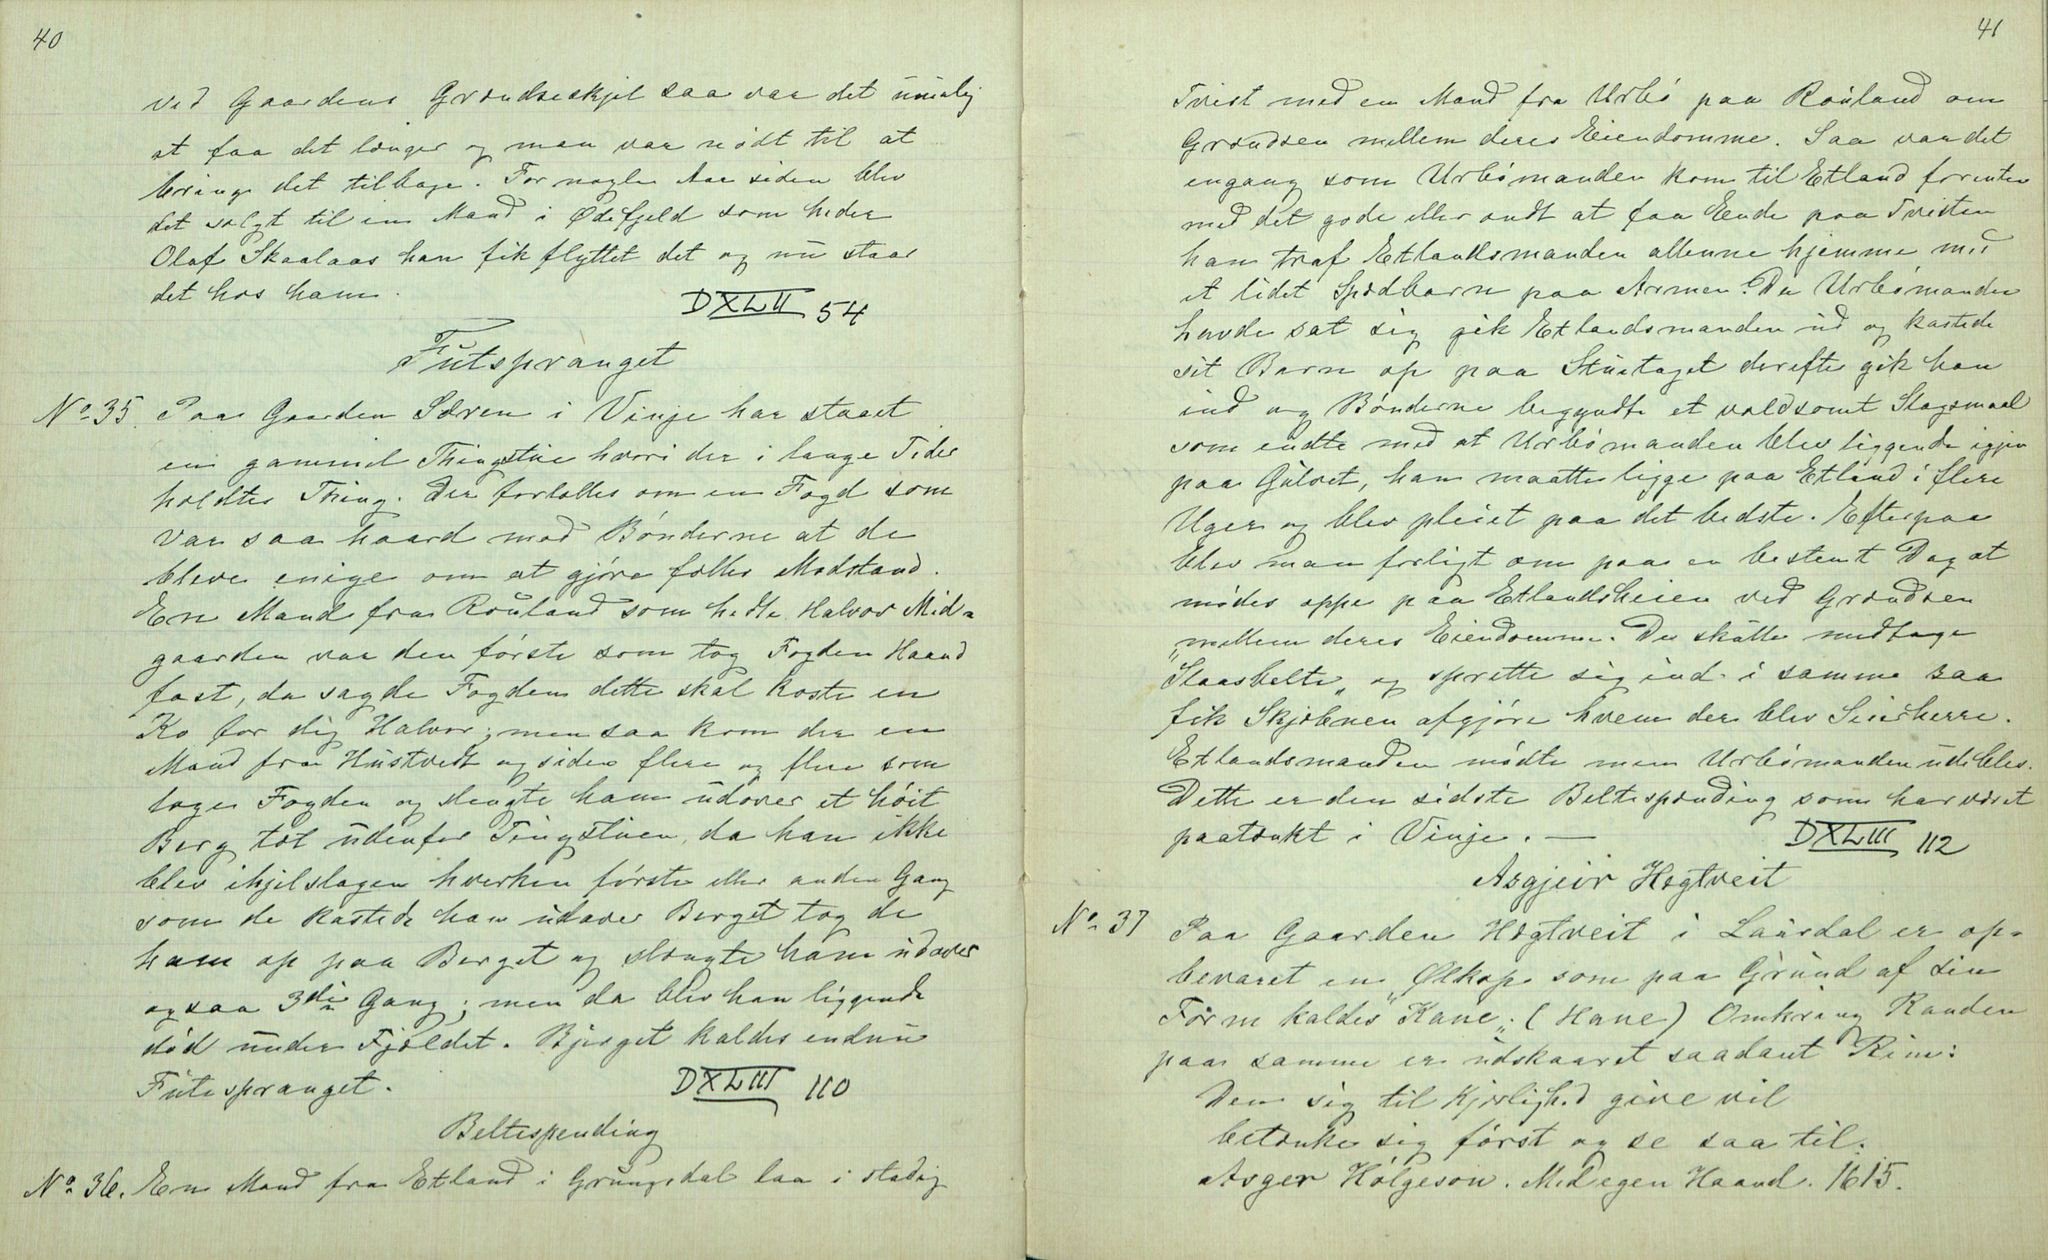 40
ved Gaardens Grændseskjel saa var det umulig
at faa det længer og man var nödt til at
bringe det tilbage. For nogle Aar siden blev
det solgt til en Mand i Ødefjeld som heder
Olaf Skaalaas han fik flyttet det og nu staar
det hos ham.
DXLII 54
Futspranget
No 35. Paa Gaarden Særen i Vinje har staaet
en gammel Thingstue hvori der i lange Tider
holdtes Thing. Der fortælles om en Fogd som
var saa haard mod Bönderne at de
bleve enige om at gjöre fælles Modstand.
En Mand fra Rauland som hedte Halvor Mid-
gaarden var den förste som tog Fogden Haand
fast, da sagde Fogden dette skal koste en
Ko for dig Halvor; men saa kom der en
Mand fra Hustvedt og siden flere og flere som
toge Fogden og slengte ham udover et höit
Berg tæt udenfor Tingstuen, da han ikke
blev ihjelslagen hverken förste eller anden Gang
som de kastede ham udover Berget tog de
ham op paa Berget og slængte ham udover
ogsaa 3die Gang; men da blev han liggende
död under Fjeldet. Bjerget kaldes endnu
Futespranget.
DXLIII 110
Beltespending
No 36. En Mand fra Etland i Grungedal laa i stadig
41
Tvist med en Mand fra Urbö paa Rauland om
Grændsen mellem deres Eiendomme. Saa var det
engang som Urbömanden kom til Etland forentes
med det gode eller ondt at faa Ende paa Tvisten
han traf Etlandsmanden allenne hjemme med
et lidet Spædbarn paa Armen. Da Urbömanden
havde sat sig gik Etlandsmanden ud og kastede
sit Barn op paa Stuetaget derefter gik han
ind og Bönderne begyndte et voldsomt Slagsmaal
som endte med at Urbömanden blev liggende igjen
paa Gulvet, han maatte ligge paa Etland i flere
Uger og blev pleiet paa det bedste. Efterpaa
blev man forligt om paa en bestemt Dag at
mödes oppe paa Etlandsheien ved Grændsen
mellem deres Eiendomme. De skulle medtage
"Slaasbelte" og sprette sig ind i samme saa
fik Skjæbnen afgjöre hvem der blev Seierherre.
Etlandsmanden mödte men Urbömanden udeblev.
Dette er den sidste Beltespænding som har været
paatænkt i Vinje. —
DXLIII 112
Asgjeir Hægtveit
No 37 Paa Gaarden Hægtveit i Laurdal er op-
bevaret en Ølkop som paa Grund af sin
Form kaldes "Kane". (Hane) Omkring Randen
paa samme er udskaaret saadant Rim:
Den sig til Kjerlighed give vil
betænke sig först og se saa til.
Asger Hölgeson. Med egen Haand. 1615.